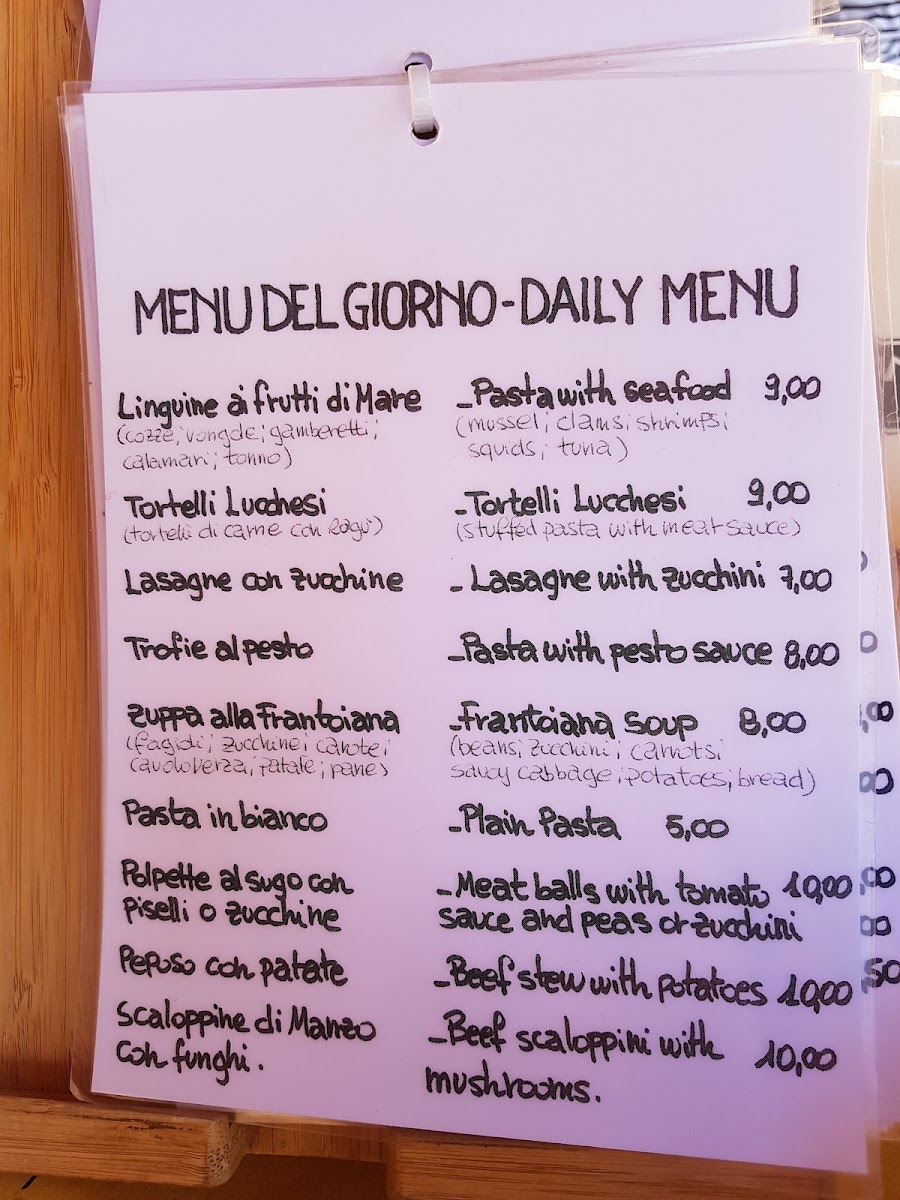 MENU DEL GIORNO - DAILY MENU
Linguine ai frutti di Mare - Pasta with seafood 9,00
(cozze; vongole; gamberetti; (mussel; clams; shrimps;
calamari; tonno) squids; tuna)
Tortelli Lucchesi - Tortelli Lucchesi 9,00
(tortelli di carne con ragù) (stuffed pasta with meat sauce)
Lasagne con zucchine - Lasagne with zucchini 7,00
Trofie al pesto - Pasta with pesto sauce 8,00
Zuppa alla Frantoiana - Frantoiana soup 8,00
(fagioli; zucchine; carote; (beans; zucchini; carrots;
cavoloverza; patate; pane) savoy cabbage; potatoes; bread)
Pasta in bianco - Plain Pasta 5,00
Polpette al sugo con - Meat balls with tomato 10,00
Piselli o zucchine sauce and peas or zucchini
Peposo con patate - Beef stew with potatoes 10,00
Scaloppine di Manzo - Beef scaloppini with 10,00
con funghi. mushrooms.